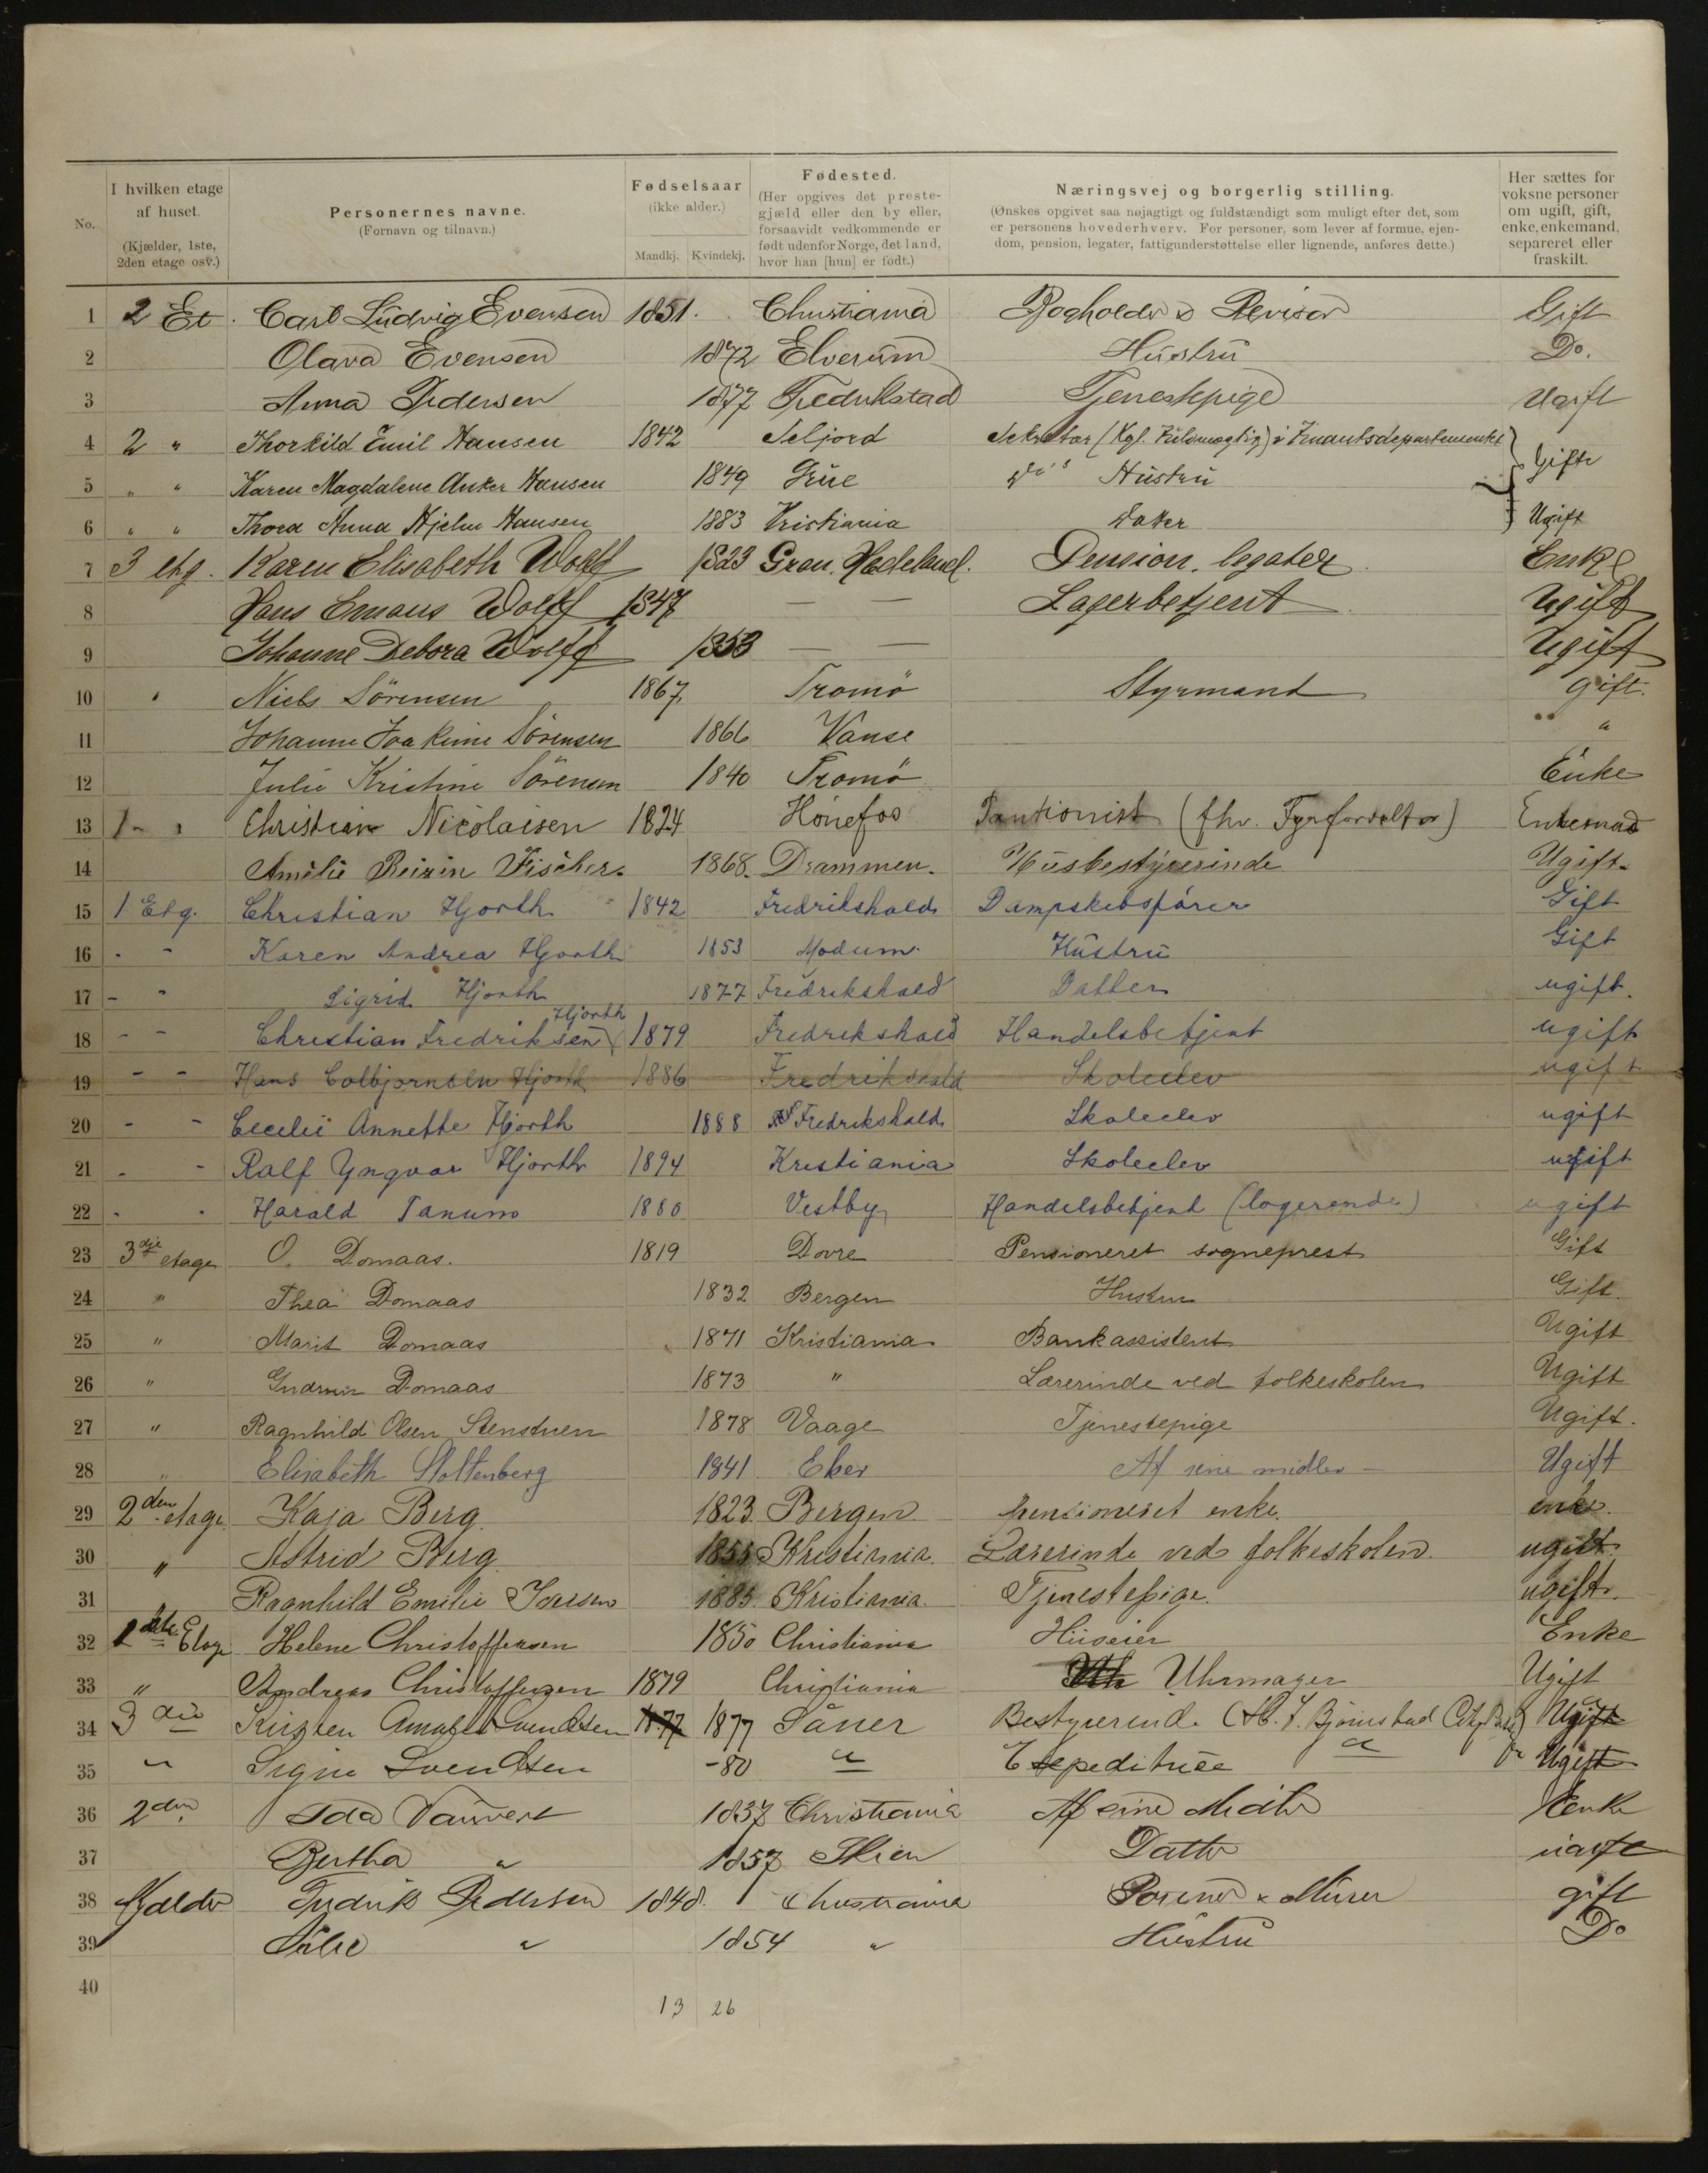 No.
I hvilken etage af huset. (Kjælder, 1ste, 2den etage osv.)
Personernes navne. (Fornavn og tilnavn.)
Fødselsaar (ikke alder.)
Mandkj. Kvindekj.
Fødested. (Her opgives det prestegjæld eller den by eller, forsaavidt vedkommende er født udenfor Norge, det land, hvor han [hun] er født.)
Næringsvej og borgerlig stilling.
(Ønskes opgivet saa nøjagtigt og fuldstændigt som muligt efter det, som er personens hovederhverv. For personer, som lever af formue, ejendom, pension, legater, fattigunderstøttelse eller lignende, anføres dette.)
Her sættes for voksne personer om ugift, gift, enke, enkemand, separeret eller fraskilt.
1 2 Et. Carl Ludvig Evensen 1851. Christiania Bogholder & Revisor Gift
2 Olava Evensen 1872 Elverum Hustru Do.
3 Anna Pedersen 1877 Fredrikstad Tjenestepige Ugift
4 2 " Thorkild Emil Hansen 1842 Seljord Sekretær (Kgl. Fuldmægtig) i Finantsdepartementet } Gifte
5 " " Karen Magdalene Anker Hansen 1849 Grue Hustru
6 " " Thora Anna Hjelm Hansen 1883 Kristiania Datter Ugift
7 3 etg. Karen Elisabeth Wolff 1823 Gran. Hadeland. Pension. legater Enke
8 Hans Emaus Wolff 1847 — — Lagerbetjent Ugift
9 Johanne Debora Wolff 1853 — — Ugift
10 " Niels Sörensen 1867 Tromö Styrmand gift.
11 Johanne Joakime Sörensen 1866 Vanse "
12 Julie Kristine Sörensen 1840 Tromö Enke
13 1 - " Christian Nicolaisen 1824 Hönefos (fhv. Fyrforvalter) Enkemand
14 Amalie Fischer. 1868. Drammen. Husbestyrerinde Ugift.
15 1 Etg. Christian Hjorth 1842 Fredrikshald Dampskibsfører Gift
16 - - Karen Andrea Hjorth 1853 Modum. Hustru Gift
17 - " Sigrid Hjorth 1877 Fredrikshald Datter ugift.
18 - - Christian Fredriksen Hjorth 1879 Fredrikshald Handelsbetjent ugift
19 - - Hans Colbjørnsen Hjorth 1886 Fredrikshald Skoleelev ugift
20 - - Cecelie Annette Hjorth 1888 Fredrikshald Skoleelev ugift
21 - - Ralf Yngvar Hjorth 1894 Kristiania Skoleelev ugift
22 - - Harald Tanum 1880 Vestby Handelsbetjent (logerende) ugift
23 3dje etage O. Domaas. 1819 Dovre Pensioneret sogneprest Gift
24 " Thea Domaas 1832 Bergen Hustru Gift.
25 " Marit Domaas 1871 Kristiania Bankassistent Ugift
26 " Gudrun Domaas 1873 " Lærerinde ved folkeskolen Ugift
27 " Ragnhild Olsen Stenstuen 1878 Vaage Tjenestepige Ugift.
28 " Elisabeth Stoltenberg 1841 Eker Af sine midler — Ugift
29 2den etage Kaja Berg 1823. Bergen pensioneret enke. enke.
30 " Astrid Berg Kristiania. Lærerinde ved folkeskolen. ugift.
31 Ragnhild Emilie 1885. Kristiania. Tjenestepige. ugift.
32 Etage Helene Christoffersen 1850 Christiania Huseier Enke
33 " Andreas Christoffersen 1879 Christiania Uhrmager Ugift
34 3die Kirsten Svendsen 1877 1877 Såner Bestyrerinde Ugift
35 " Signe Svendsen -80 " Expeditrice " Ugift
36 2den Ida 1837 Christiania Af sine Midler Enke
37 Bertha " 1857 Skien Datter ugift
38 Kjælder Fredrik Pedersen 1848. Christiania & Murer gift
39 Julie " 1854 " Hustru Do
40
13 26